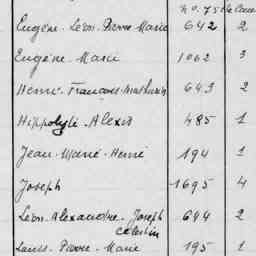 no. 751
Eugène-Léon-Pierre-Marie 642 2
Eugène-Marie 1062 3
Henri-François-Mathurin 643 2
Hippolyte-Alexis 485 1
Jean-Marie-Henri 194 1
Joseph 1695 4
Léon-Alexandre-Joseph 644 2
Célestin
Louis-Pierre-Marie 195 1